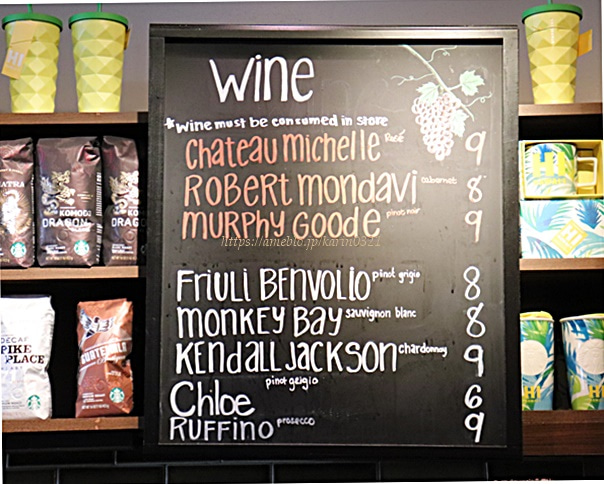 Wine
*Wine must be consumed in store
Chateau Michelle Rosé 9
Robert Mondavi cabernet 8
Murphy Goode pinot noir 9
https://ameblo.jp/karin0321
Friuli Benvolio pinot grigio 8
Monkey Bay sauvignon blanc 8
Kendall Jackson chardonnay 9
Chloe pinot geigio 6
Ruffino prosecco 9
KOMODO
DRAGON
DECAF
PIKE
PLACE
GUATEMALA
HI
HI